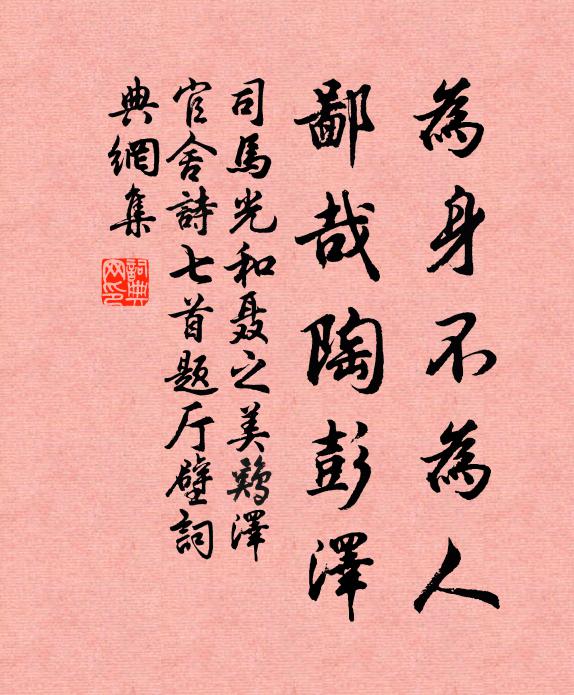 為身不為人
鄙哉陶彭澤
司馬光和聂之美鶏澤
官舍詩七首題厅壁詞
典網集
詞典网印